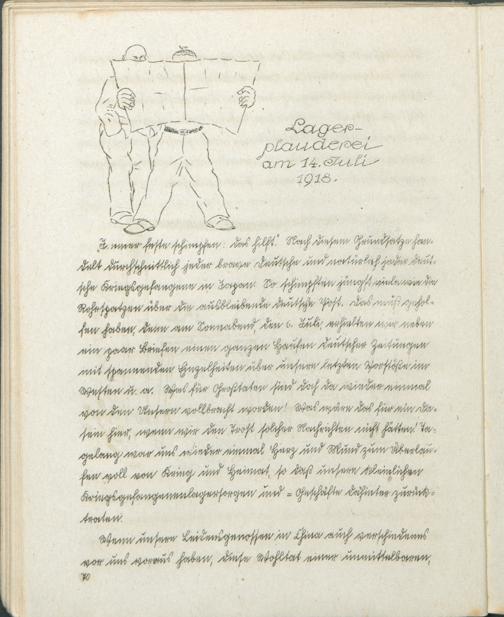 Lager-
plauderei
am 14. Juli
1918.
"Immer feste schimpfen: das hilft." Nach diesem Grundsatze han-
delt durchschnittlich jeder brave Deutsche und natürlich jeder deut-
sche Kriegsgefangene in Japan. So schimpften jüngst viele wie die
Rohrspatzen über die ausbleibende deutsche Post. Das muß gehol-
fen haben, denn am Sonnabend, den 6. Juli, erhielten wir neben
ein paar Briefen einen ganzen Haufen deutscher Zeitungen
mit spannenden Einzelheiten über unsere letzten Vorstöße im
Westen u. a. Was für Großtaten sind doch da wieder einmal
von den Unsern vollbracht worden! Was wäre das für ein Da-
sein hier, wenn wir den Trost solcher Nachrichten nicht hätten! Ta-
gelang war uns wieder einmal Herz und Mund zum Überlau-
fen voll von Krieg und Heimat, so daß unsere kleinlichen
Kriegsgefangenenlagersorgen und = Geschäfte dahinter zurück-
traten.
Wenn unsere Leidensgenossen in China auch verschiedenes
vor uns voraus haben, diese Wohltat einer unmittelbaren,
70